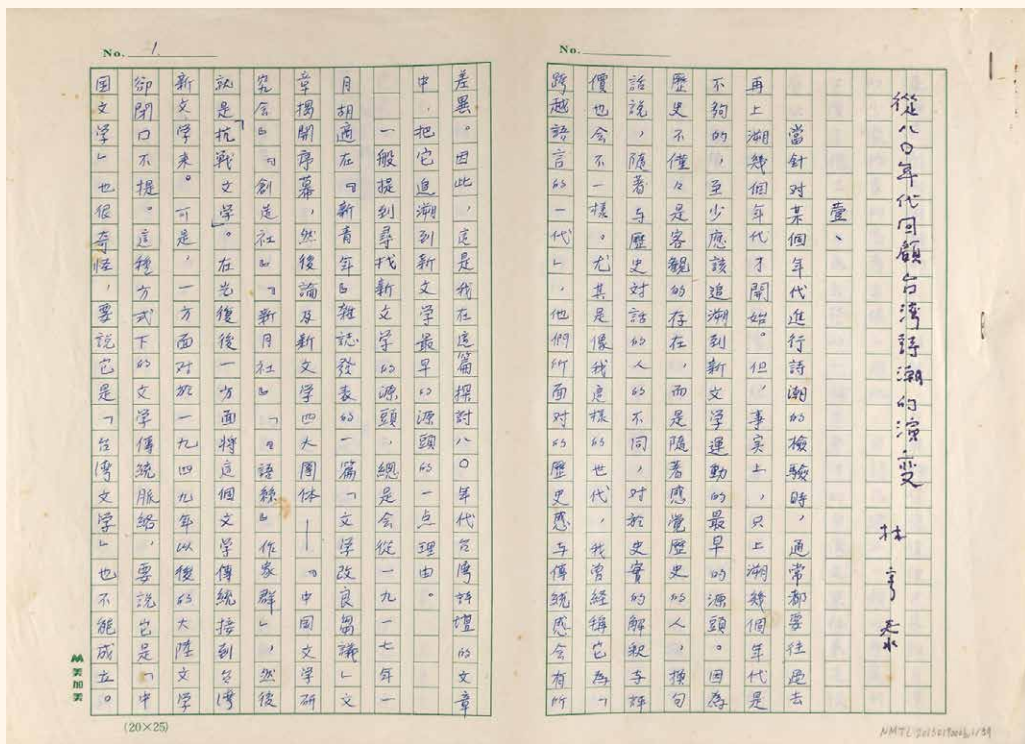 No.
從八〇年代回顧台湾詩潮的演变
林亨泰
壹、
當針对某個年代進行詩潮的檢驗時，通常都要往過去
再上溯幾個年代才開始。但，事实上，只上溯幾個年代是
不夠的，至少應該追溯到新文学運動的最早的源頭。因為
歷史不僅々是客観的存在，而是隨著感覚歷史的人，換句
話說，隨著与歷史对話的人的不同，对於史實的解釈与評
價也会不一樣。尤其是像我這樣的世代，我曾経稱它為「
跨越語言的一代」，他們所面对的歷史感与傳統感会有所
No. 1.
差異。因此，這是我在這篇探討八〇年代台湾詩壇的文章
中，把它追溯到新文学最早的源頭的一点理由。
一般提到尋找新文学的源頭，總是会從一九一七年一
月胡適在『新青年』雜誌發表的一篇「文学改良芻議」文
章揭開序幕，然後論及新文学四大團体——『中国文学研
究会』『創造社』『新月社』『語絲』作家群」，然後
就是「抗戰文学」。在光復後一方面將這個文学傳統接到台湾
新文学來。可是，一方面对於一九四九年以後的大陸文学
卻閉口不提。這種方式下的文学傳統脈絡，要說它是「中
国文学」也很奇怪，要說它是「台湾文学」也不能成立。
美加美
(20×25)